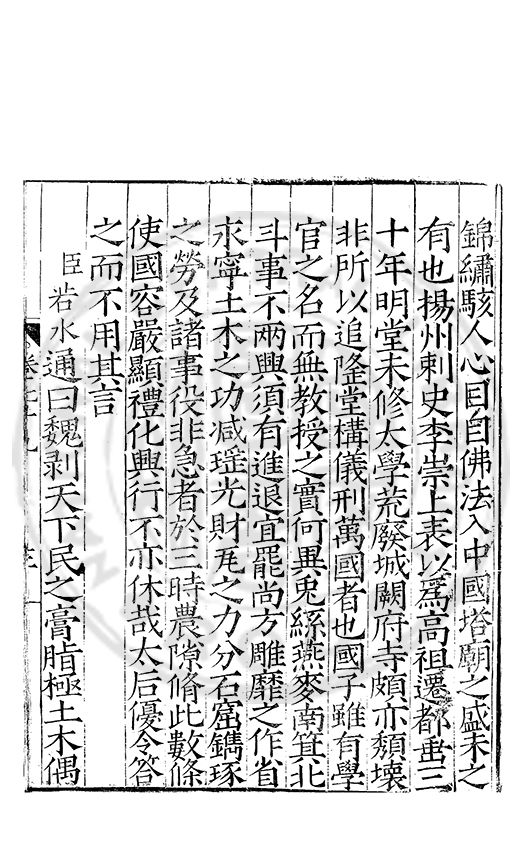 錦繡駭人心目自佛法入中國塔廟之盛未之
有也揚州刺史李崇上表以爲高祖遷都垂三
十年明堂未修太學荒廢城闕府寺頗亦頹壞
非所以追隆堂構儀刑萬國者也國子雖有學
官之名而無教授之實何異兎絲燕麥南箕北
斗事不两興須有進退宜罷尚方雕靡之作省
永寧土木之功减瑶光財瓦之力分石窟鐫琢
之勞及諸事役非急者於三時農隙脩此數條
使國容嚴顯禮化興行不亦休哉太后優令答
之而不用其言
臣若水通曰魏剥天下民之膏脂極土木偶